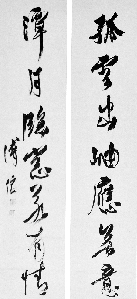 孤雲出岫應無意
潭月臨窓若有情
溥儒